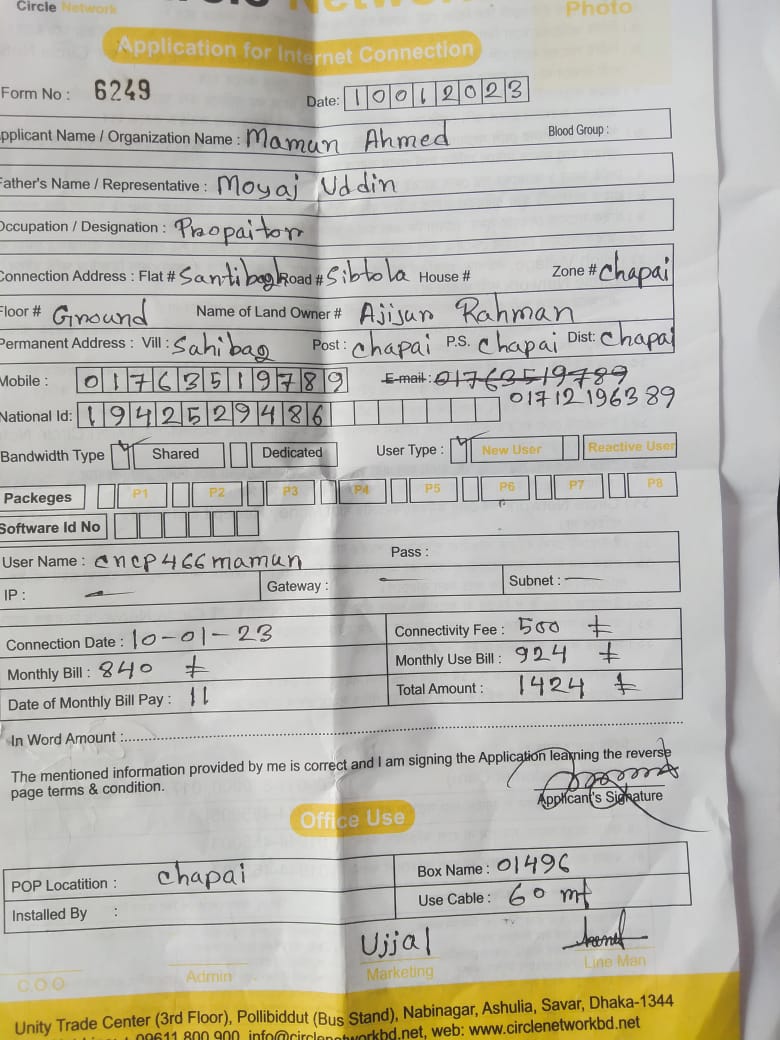 Circle Network
Circle Network
Photo
Application for Internet Connection
Form No : 6249
Date: 10012023
Applicant Name / Organization Name : Mamun Ahmed Blood Group :
Father's Name / Representative : Moyaj Uddin
Occupation / Designation : Propaitorr
Connection Address : Flat # Santibagh Road # Sibtola House # Zone # chapai
Floor # Ground Name of Land Owner # Ajijur Rahman
Permanent Address : Vill : Sahibag Post : chapai P.S. chapai Dist: chapai
Mobile : 01763519789 E-mail : 01763519789
01712196389
National Id: 1942529486
Bandwidth Type ✓ Shared Dedicated User Type : ✓ New User Reactive User
Packeges P1 P2 P3 P4 P5 P6 P7 P8
Software Id No
User Name : cncp466mamun Pass :
IP : — Gateway : — Subnet : —
Connection Date : 10-01-23 Connectivity Fee : 500 ৳
Monthly Bill : 840 ৳ Monthly Use Bill : 924 ৳
Date of Monthly Bill Pay : 11 Total Amount : 1424 ৳
In Word Amount :
The mentioned information provided by me is correct and I am signing the Application learning the reverse
page terms & condition.
Applicant's Signature
Office Use
POP Locatition : chapai Box Name : 01496
Installed By : Use Cable : 60 mt
Ujjal
C.O.O Admin Marketing Line Man
Unity Trade Center (3rd Floor), Pollibiddut (Bus Stand), Nabinagar, Ashulia, Savar, Dhaka-1344
09611 800 900, info@circlenetworkbd.net, web: www.circlenetworkbd.net